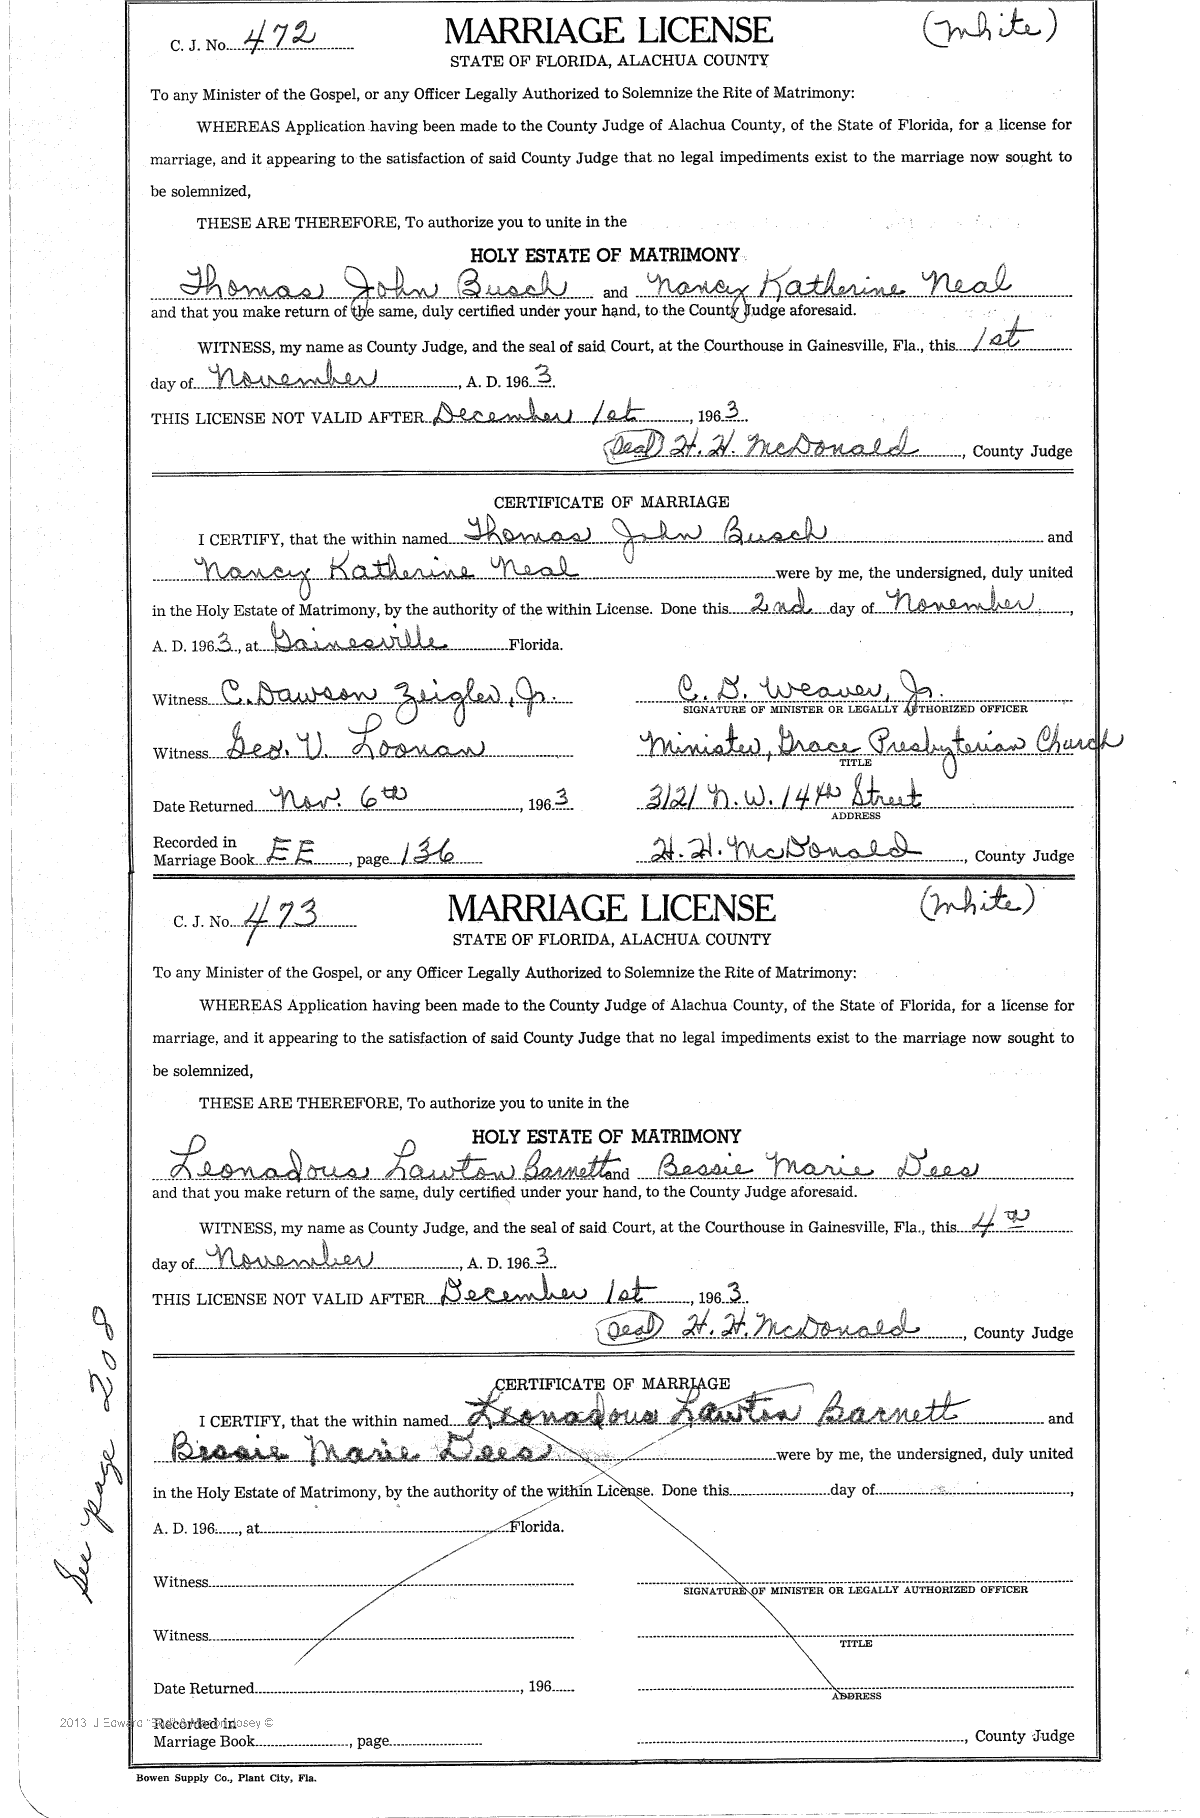 C. J. No. 472 MARRIAGE LICENSE (White)
STATE OF FLORIDA, ALACHUA COUNTY
To any Minister of the Gospel, or any Officer Legally Authorized to Solemnize the Rite of Matrimony:
WHEREAS Application having been made to the County Judge of Alachua County, of the State of Florida, for a license for
marriage, and it appearing to the satisfaction of said County Judge that no legal impediments exist to the marriage now sought to
be solemnized,
THESE ARE THEREFORE, To authorize you to unite in the
HOLY ESTATE OF MATRIMONY
Thomas John Busch and Nancy Katherine Neal
and that you make return of the same, duly certified under your hand, to the County Judge aforesaid.
WITNESS, my name as County Judge, and the seal of said Court, at the Courthouse in Gainesville, Fla., this 1st
day of November, A. D. 1963.
THIS LICENSE NOT VALID AFTER December 1st, 1963.
(Seal) H. H. McDonald, County Judge
CERTIFICATE OF MARRIAGE
I CERTIFY, that the within named Thomas John Busch and
Nancy Katherine Neal were by me, the undersigned, duly united
in the Holy Estate of Matrimony, by the authority of the within License. Done this 2nd day of November,
A. D. 1963, at Gainesville Florida.
Witness C. Dawson Zeigler, Jr. C. D. Weaver, Jr.
SIGNATURE OF MINISTER OR LEGALLY AUTHORIZED OFFICER
Witness Geo. V. Loonan Minister, Grace Presbyterian Church
TITLE
Date Returned Nov. 6th, 1963 3121 N.W. 14th Street
ADDRESS
Recorded in
Marriage Book EE, page 136 H. H. McDonald, County Judge
C. J. No. 473 MARRIAGE LICENSE (White)
STATE OF FLORIDA, ALACHUA COUNTY
To any Minister of the Gospel, or any Officer Legally Authorized to Solemnize the Rite of Matrimony:
WHEREAS Application having been made to the County Judge of Alachua County, of the State of Florida, for a license for
marriage, and it appearing to the satisfaction of said County Judge that no legal impediments exist to the marriage now sought to
be solemnized,
THESE ARE THEREFORE, To authorize you to unite in the
HOLY ESTATE OF MATRIMONY
Leonadous Lawton Barnett and Bessie Marie Dees
and that you make return of the same, duly certified under your hand, to the County Judge aforesaid.
WITNESS, my name as County Judge, and the seal of said Court, at the Courthouse in Gainesville, Fla., this 4th
day of November, A. D. 1963.
THIS LICENSE NOT VALID AFTER December 1st, 1963.
(Seal) H. H. McDonald, County Judge
CERTIFICATE OF MARRIAGE
I CERTIFY, that the within named Leonadous Lawton Barnett and
Bessie Marie Dees were by me, the undersigned, duly united
in the Holy Estate of Matrimony, by the authority of the within License. Done this day of,
A. D. 196, at Florida.
Witness
SIGNATURE OF MINISTER OR LEGALLY AUTHORIZED OFFICER
Witness
TITLE
Date Returned, 196
ADDRESS
2013 J Edward ©
Recorded in
Marriage Book, page, County Judge
Bowen Supply Co., Plant City, Fla.
See page 208